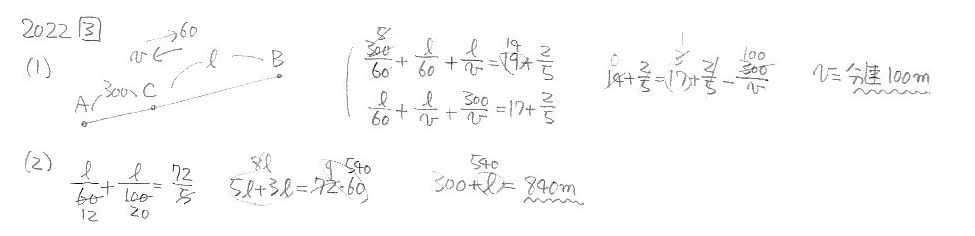 2022 3
(1) A 300 C l B
→60
v←
300/60 + l/60 + l/v = 19 + 2/5
l/60 + l/v + 300/v = 17 + 2/5
14 + 2/5 = 17 + 2/5 - 300/v
v = 分速100m
(2) l/60 + l/100 = 72/5
12 20
5l + 3l = 72·60
8l 9 540
300 + l = 840m
540